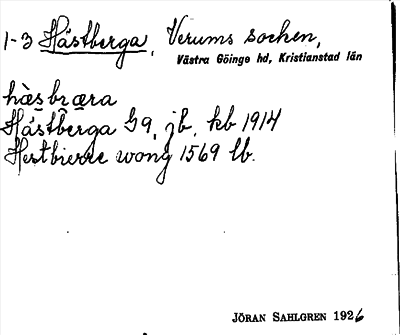 1-3 Hästberga, Verums socken,
Västra Göinge hd, Kristianstad län
hæsbræra
Hästberga G 9, jb, kb 1914
Hestbierre wong 1569 lb.
JÖRAN SAHLGREN 1926